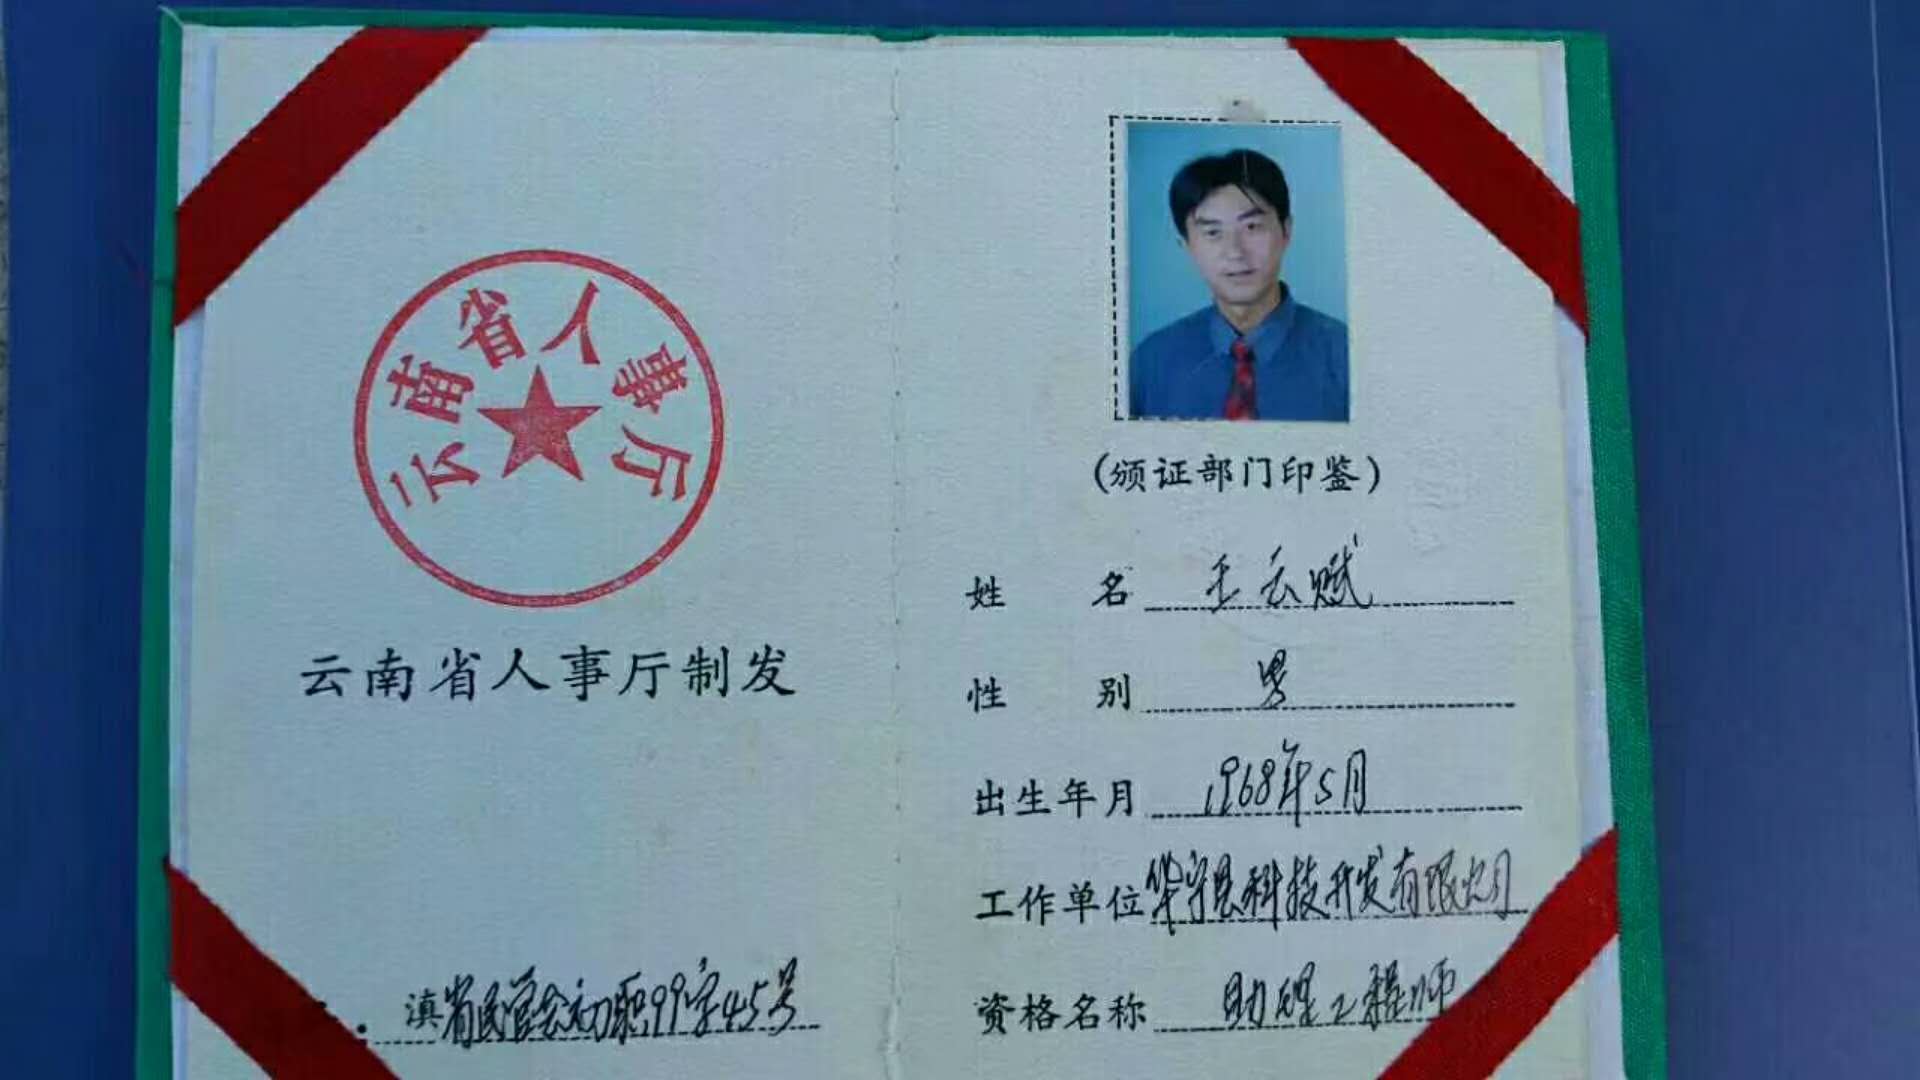 云南省人事厅
云南省人事厅制发
滇省民营会初职99字45号
(颁证部门印鉴)
姓 名 王云赋
性 别 男
出生年月 1968年5月
工作单位 华宁县科技开发有限公司
资格名称 助理工程师